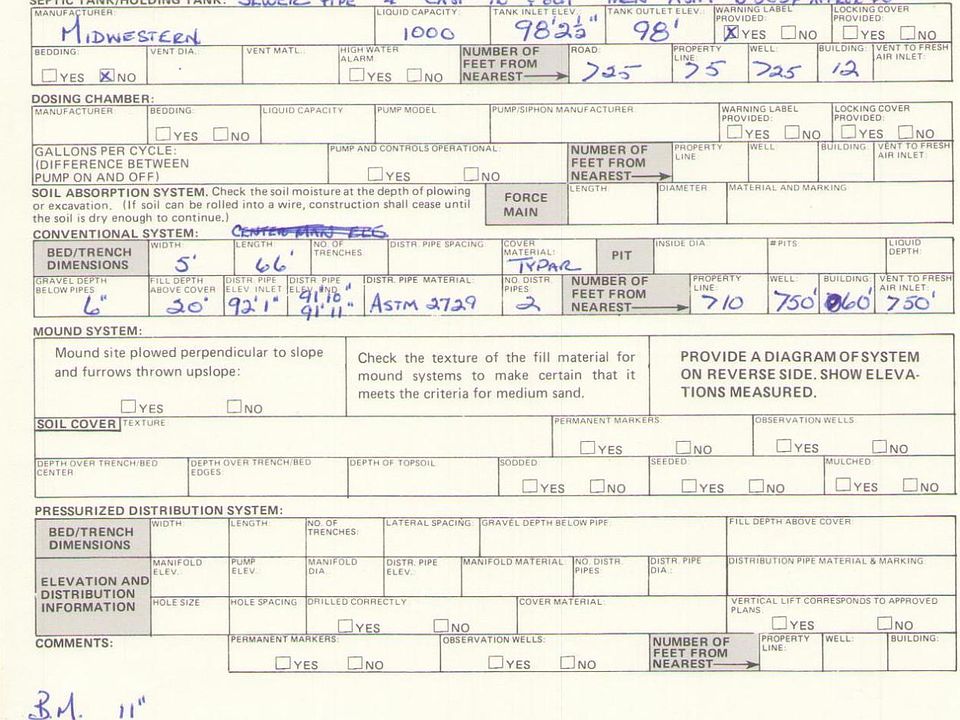 SEPTIC TANK/HOLDING TANK: SEWER PIPE
MANUFACTURER: LIQUID CAPACITY: TANK INLET ELEV.: TANK OUTLET ELEV.: WARNING LABEL PROVIDED: LOCKING COVER PROVIDED:
MIDWESTERN 1000 98'2½" 98' ☒YES ☐NO ☐YES ☐NO
BEDDING: VENT DIA.: VENT MATL.: HIGH WATER ALARM NUMBER OF FEET FROM NEAREST ROAD: PROPERTY LINE: WELL: BUILDING: VENT TO FRESH AIR INLET:
☐YES ☒NO ☐YES ☐NO >25 >5 >25 12
DOSING CHAMBER:
MANUFACTURER BEDDING: LIQUID CAPACITY PUMP MODEL PUMP/SIPHON MANUFACTURER WARNING LABEL PROVIDED: LOCKING COVER PROVIDED:
☐YES ☐NO ☐YES ☐NO ☐YES ☐NO
GALLONS PER CYCLE: PUMP AND CONTROLS OPERATIONAL: NUMBER OF PROPERTY WELL BUILDING: VENT TO FRESH
(DIFFERENCE BETWEEN FEET FROM LINE AIR INLET:
PUMP ON AND OFF) ☐YES ☐NO NEAREST
SOIL ABSORPTION SYSTEM. Check the soil moisture at the depth of plowing
or excavation. (If soil can be rolled into a wire, construction shall cease until
the soil is dry enough to continue.)
FORCE MAIN LENGTH: DIAMETER MATERIAL AND MARKING
CONVENTIONAL SYSTEM:
BED/TRENCH DIMENSIONS WIDTH: LENGTH: NO. OF TRENCHES: DISTR. PIPE SPACING: COVER MATERIAL: PIT INSIDE DIA #PITS: LIQUID DEPTH:
5' 66' TYPAR
GRAVEL DEPTH BELOW PIPES FILL DEPTH ABOVE COVER DISTR. PIPE ELEV. INLET DISTR. PIPE ELEV. END DISTR. PIPE MATERIAL: NO. DISTR. PIPES NUMBER OF FEET FROM NEAREST PROPERTY LINE: WELL: BUILDING: VENT TO FRESH AIR INLET:
6" 20' 92'1" 91'10" 91'11" ASTM 2729 2 >10 >50' 60' >50'
MOUND SYSTEM:
Mound site plowed perpendicular to slope
and furrows thrown upslope:
☐YES ☐NO
Check the texture of the fill material for
mound systems to make certain that it
meets the criteria for medium sand.
PROVIDE A DIAGRAM OF SYSTEM
ON REVERSE SIDE. SHOW ELEVA-
TIONS MEASURED.
SOIL COVER TEXTURE PERMANENT MARKERS: OBSERVATION WELLS:
☐YES ☐NO ☐YES ☐NO
DEPTH OVER TRENCH/BED CENTER DEPTH OVER TRENCH/BED EDGES DEPTH OF TOPSOIL SODDED SEEDED: MULCHED:
☐YES ☐NO ☐YES ☐NO ☐YES ☐NO
PRESSURIZED DISTRIBUTION SYSTEM:
BED/TRENCH DIMENSIONS WIDTH LENGTH: NO. OF TRENCHES: LATERAL SPACING: GRAVEL DEPTH BELOW PIPE: FILL DEPTH ABOVE COVER:
ELEVATION AND DISTRIBUTION INFORMATION MANIFOLD ELEV. PUMP ELEV. MANIFOLD DIA. DISTR. PIPE ELEV.: MANIFOLD MATERIAL: NO. DISTR. PIPES: DISTR. PIPE DIA.: DISTRIBUTION PIPE MATERIAL & MARKING:
HOLE SIZE HOLE SPACING DRILLED CORRECTLY COVER MATERIAL: VERTICAL LIFT CORRESPONDS TO APPROVED PLANS:
☐YES ☐NO ☐YES ☐NO
COMMENTS: PERMANENT MARKERS: OBSERVATION WELLS: NUMBER OF FEET FROM NEAREST PROPERTY LINE: WELL: BUILDING:
☐YES ☐NO ☐YES ☐NO
B.M. 11"